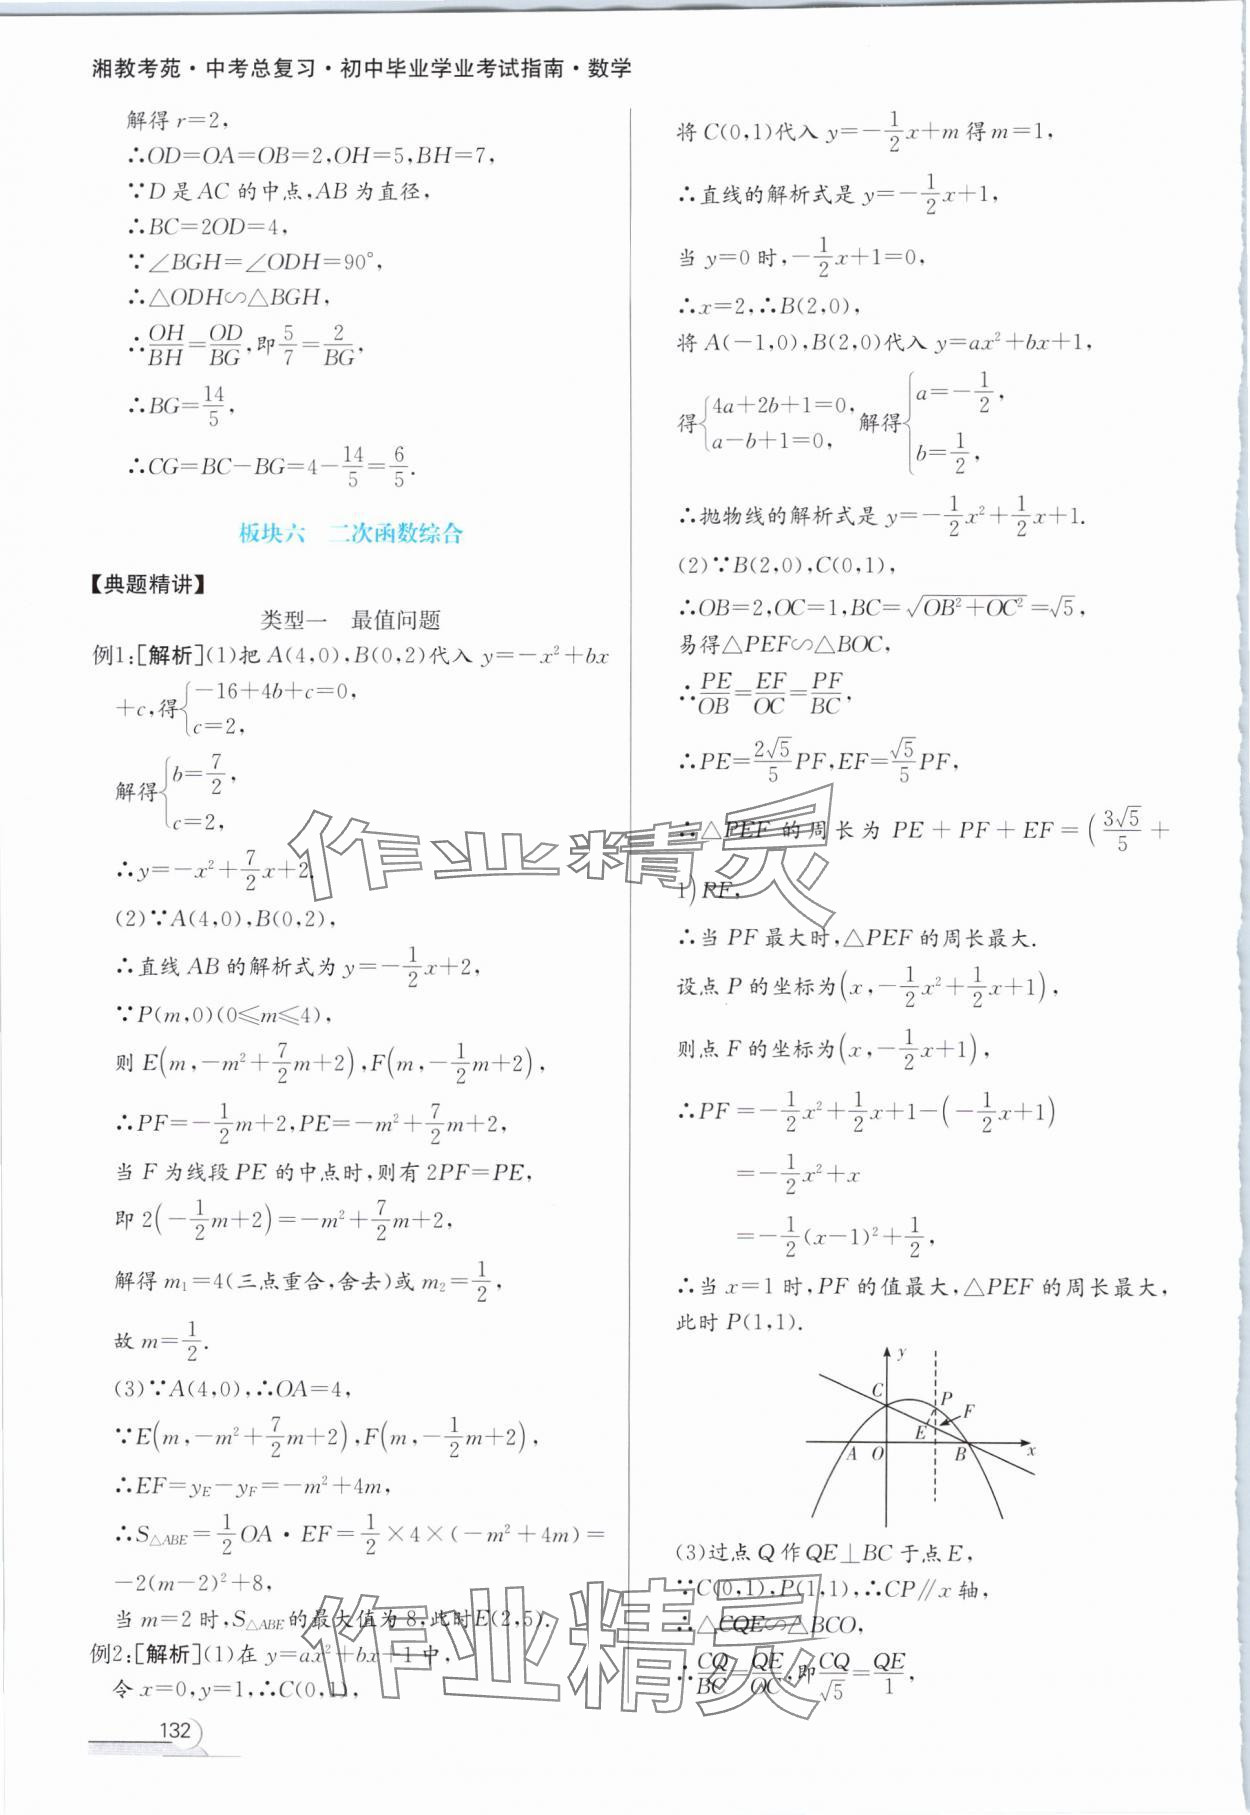 湘教考苑·中考总复习·初中毕业学业考试指南·数学
解得 r=2,
∴OD=OA=OB=2,OH=5,BH=7,
∵D 是 AC 的中点,AB 为直径,
∴BC=2OD=4,
∵∠BGH=∠ODH=90°,
∴△ODH∽△BGH,
∴OH/BH=OD/BG,即5/7=2/BG,
∴BG=14/5,
∴CG=BC-BG=4-14/5=6/5.
板块六 二次函数综合
【典题精讲】
类型一 最值问题
例1:[解析](1)把 A(4,0),B(0,2)代入 y=-x²+bx
+c,得{-16+4b+c=0,
c=2,
解得{b=7/2,
c=2,
∴y=-x²+7/2x+2.
(2)∵A(4,0),B(0,2),
∴直线 AB 的解析式为 y=-1/2x+2,
∵P(m,0)(0≤m≤4),
则 E(m,-m²+7/2m+2),F(m,-1/2m+2),
∴PF=-1/2m+2,PE=-m²+7/2m+2,
当 F 为线段 PE 的中点时,则有 2PF=PE,
即 2(-1/2m+2)=-m²+7/2m+2,
解得 m₁=4(三点重合,舍去)或 m₂=1/2,
故 m=1/2.
(3)∵A(4,0),∴OA=4,
∵E(m,-m²+7/2m+2),F(m,-1/2m+2),
∴EF=y_E-y_F=-m²+4m,
∴S△ABE=1/2OA·EF=1/2×4×(-m²+4m)=
-2(m-2)²+8,
当 m=2 时,S△ABE的最大值为 8,此时E(2,5).
例2:[解析](1)在 y=ax²+bx+1 中,
令 x=0,y=1,∴C(0,1),
将 C(0,1)代入 y=-1/2x+m 得 m=1,
∴直线的解析式是 y=-1/2x+1,
当 y=0 时,-1/2x+1=0,
∴x=2,∴B(2,0),
将 A(-1,0),B(2,0)代入 y=ax²+bx+1,
得{4a+2b+1=0,
a-b+1=0,
解得{a=-1/2,
b=1/2,
∴抛物线的解析式是 y=-1/2x²+1/2x+1.
(2)∵B(2,0),C(0,1),
∴OB=2,OC=1,BC=√(OB²+OC²)=√5,
易得△PEF∽△BOC,
∴PE/OB=EF/OC=PF/BC,
∴PE=2√5/5PF,EF=√5/5PF,
∴△PEF 的周长为 PE+PF+EF=(3√5/5+
1)PF,
∴当 PF 最大时,△PEF 的周长最大.
设点 P 的坐标为(x,-1/2x²+1/2x+1),
则点 F 的坐标为(x,-1/2x+1),
∴PF=-1/2x²+1/2x+1-(-1/2x+1)
=-1/2x²+x
=-1/2(x-1)²+1/2,
∴当 x=1 时,PF 的值最大,△PEF 的周长最大,
此时 P(1,1).
y
C
P
F
E
A
O
B
x
(3)过点 Q 作 QE⊥BC 于点 E,
∵C(0,1),P(1,1),∴CP∥x 轴,
∴△CQE∽△BCO,
∴CQ/BC=QE/OC,即CQ/√5=QE/1,
132
作业精灵
作业精灵